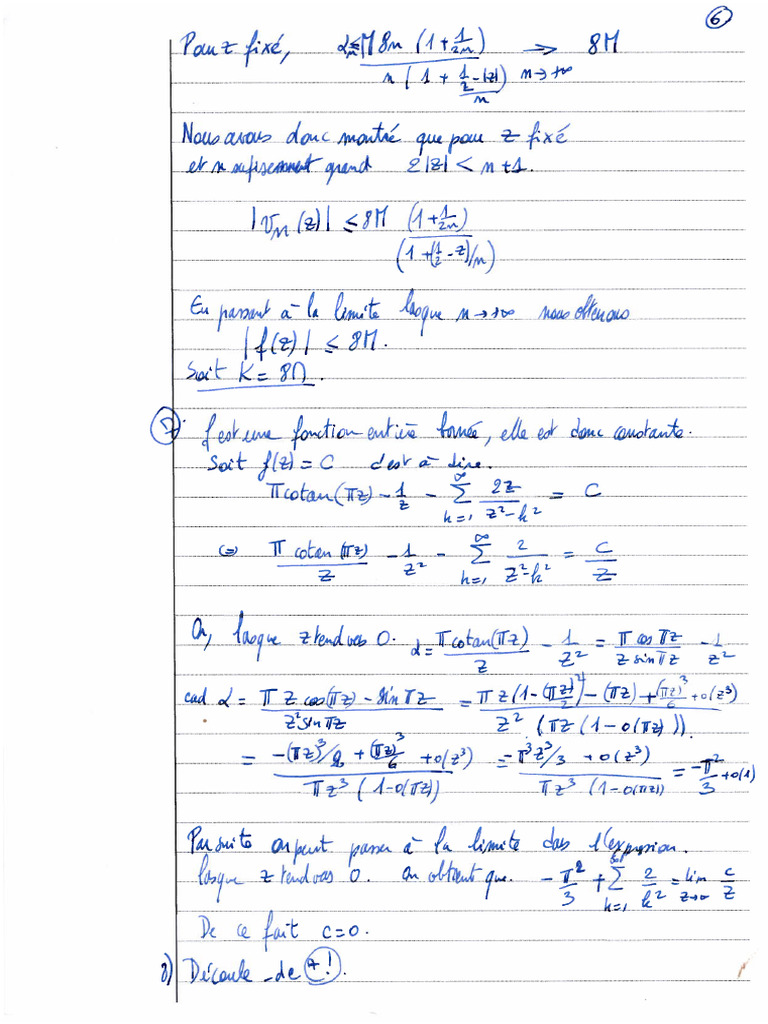 6
Pour z fixé, αₙ ≤ M 8n (1 + 1/2n) / n (1 + (1/2 - |z|)/n) → n→+∞ 8M
Nous avons donc montré que pour z fixé
et n suffisemment grand 2|z| < n+1.
|Vₙ(z)| ≤ 8M (1 + 1/2n) / (1 + (1/2 - z)/n)
En passant à la limite lorsque n→+∞ nous obtenons
|f(z)| ≤ 8M.
Soit K = 8M.
7. f est une fonction entière bornée, elle est donc constante.
Soit f(z) = C c'est à dire.
π cotan(πz) - 1/z - ∑_{k=1}^{∞} 2z/(z²-k²) = C
(=) π cotan(πz)/z - 1/z² - ∑_{k=1}^{∞} 2/(z²-k²) = C/z
Or, lorsque z tend vers 0. α = π cotan(πz)/z - 1/z² = π cos πz/(z sin πz) - 1/z²
cad α = (πz cos(πz) - sin πz)/(z² sin πz) = (πz(1 - (πz)²/2) - (πz) + (πz)³/6 + o(z³))/(z² (πz(1 - o(πz))).
= (-(πz)³/2 + (πz)³/6 + o(z³))/(πz³(1 - o(πz))) = (-π³z³/3 + o(z³))/(πz³(1 - o(πz))) = -π²/3 + o(1)
Par suite on peut passer à la limite dans l'expression.
lorsque z tend vers 0. on obtient que. -π²/3 + ∑_{k=1} 2/k² = lim_{z→∞} c/z
De ce fait c = 0.
8) Découle de 7!.